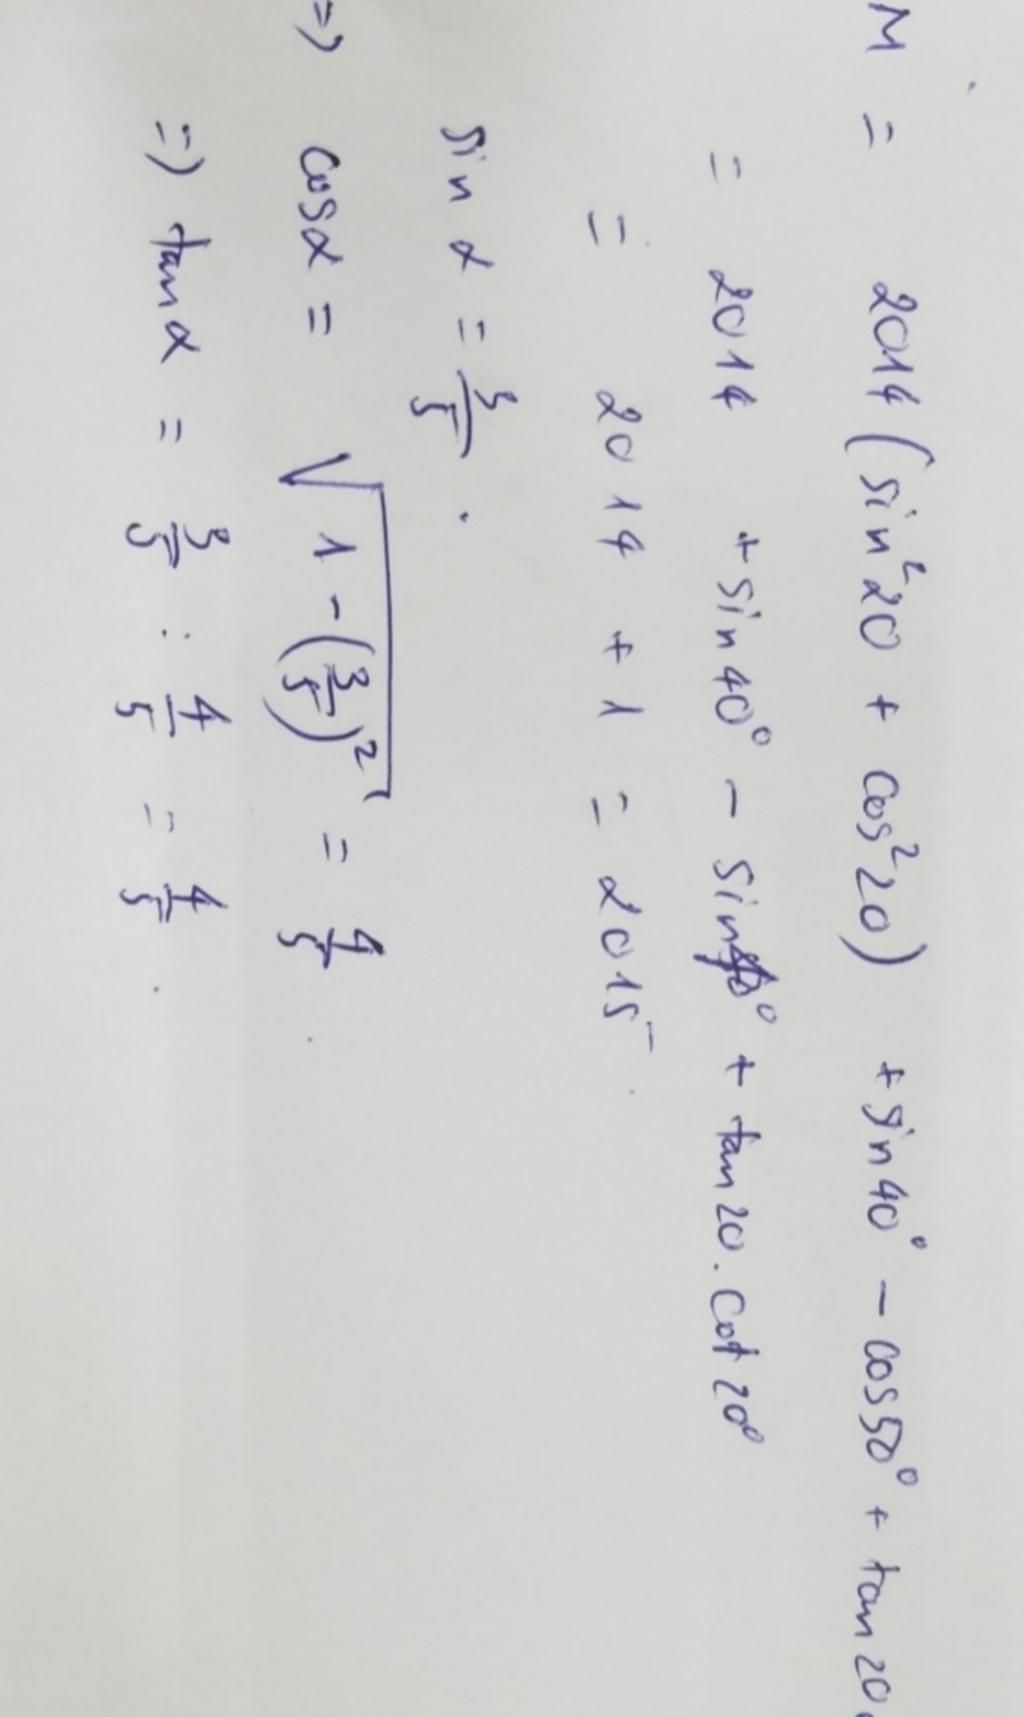 M = 2014 (sin²20 + cos²20) + sin40° - cos50° + tan20.
= 2014 + sin40° - sin40° + tan20. cot20°
= 2014 + 1 = 2015.
sin α = 3/5.
=> cosα = √(1 - (3/5)²) = 4/5.
=> tanα = 3/5 : 4/5 = 4/5.